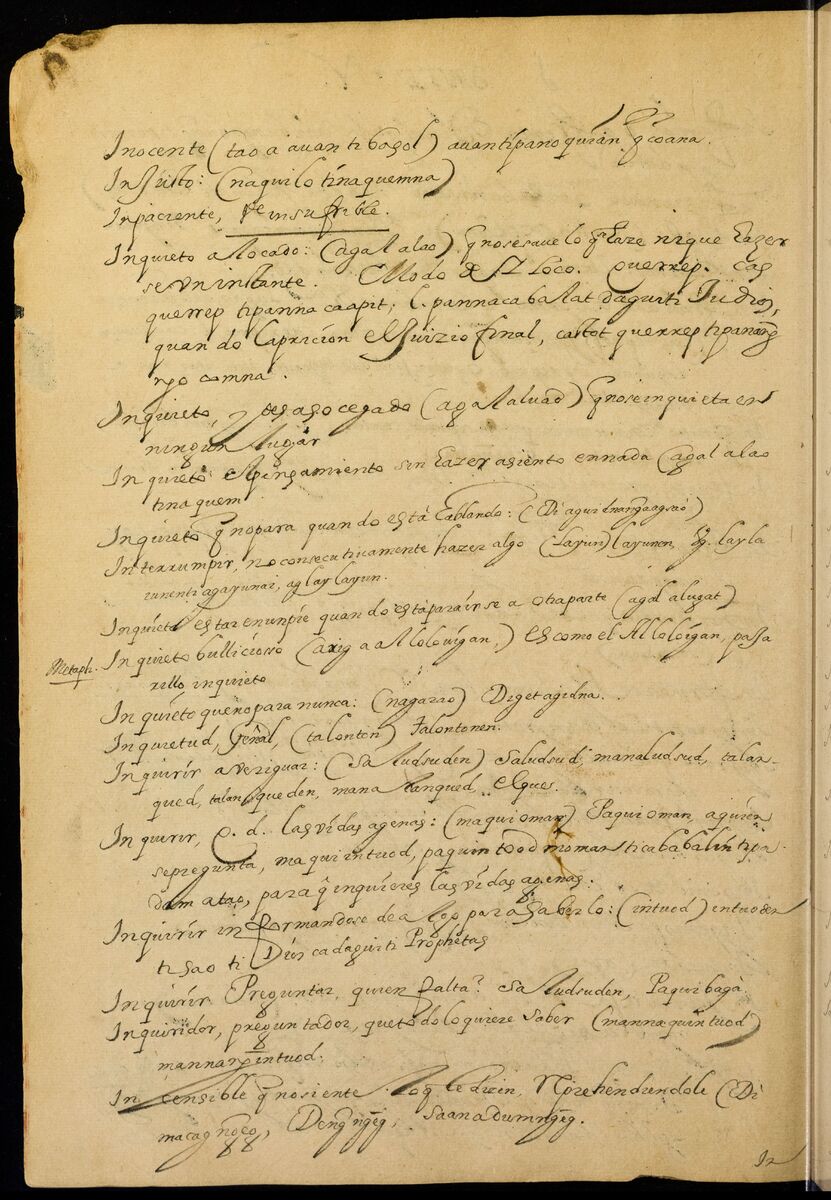 Inocente (tao a avan ti basol) avantipano quian. q̃ coana.
Injusto: (naquilo tinaquemna)
Inpaciente, Vᵉ insufrible.
Inquieto alocado: (agal alao) q̃ no se save lo q̃ haze ni que hazer
se un instante. Modo de st. Loco. querrep. cas
querrep tipanna caapit; l. pannacabalat daguiti Judios,
quando la pricion el Juizio final, castot querrep tipanang
co comna.
Inquieto, y desasocegado (agal aluad) q̃ no se inquieta en
ningun lugar
Inquieto el pensamiento sin hazer asiento en nada (agal alao
tinaquem
Inquieto q̃ no para quando està hablando: (Di aguidnangaagsao)
Interrumpir, no consecutivamente hazer algo (layun) layunen, layla
iunenti agayunai, aglaylayun.
Inquieto estar en un pie quando esta para irse a otra parte (agal alugat)
Metaph. Inquieto bullicioso (arig a allolovigan.) es como el Alloloigan, paja
rillo inquieto
Inquieto que no para nunca: (nagarao) Digetagidna.
Inquietud, Genal, (talonton) Talontonen.
Inquirir averiguar: (saludsuden) saludsud, manaludsud, talan-
qued, talanqueden, manalanqued, el ques.
Inquirir, las vidas agenas: (maquioman) Paquioman, a quien
se pregunta, maquintuod, paquintood
dam atao, para q̃ inquieres las vidas agenas.
Inquirir informandose de algo para saberlo: (intuod) intuoden
tisao ti Dios cadaguiti Prophetas
Inquirir Preguntar, quien falta? saludsuden, Paquibaga.
Inquiridor, preguntador, que todo lo quiere saber (mannaquintuod)
mannarintuod.
Incensible q̃ no siente lo q̃ le dizen, reprehendiendole (Di
macagñgeg, Dengñgeg, saanadumngeg.
In